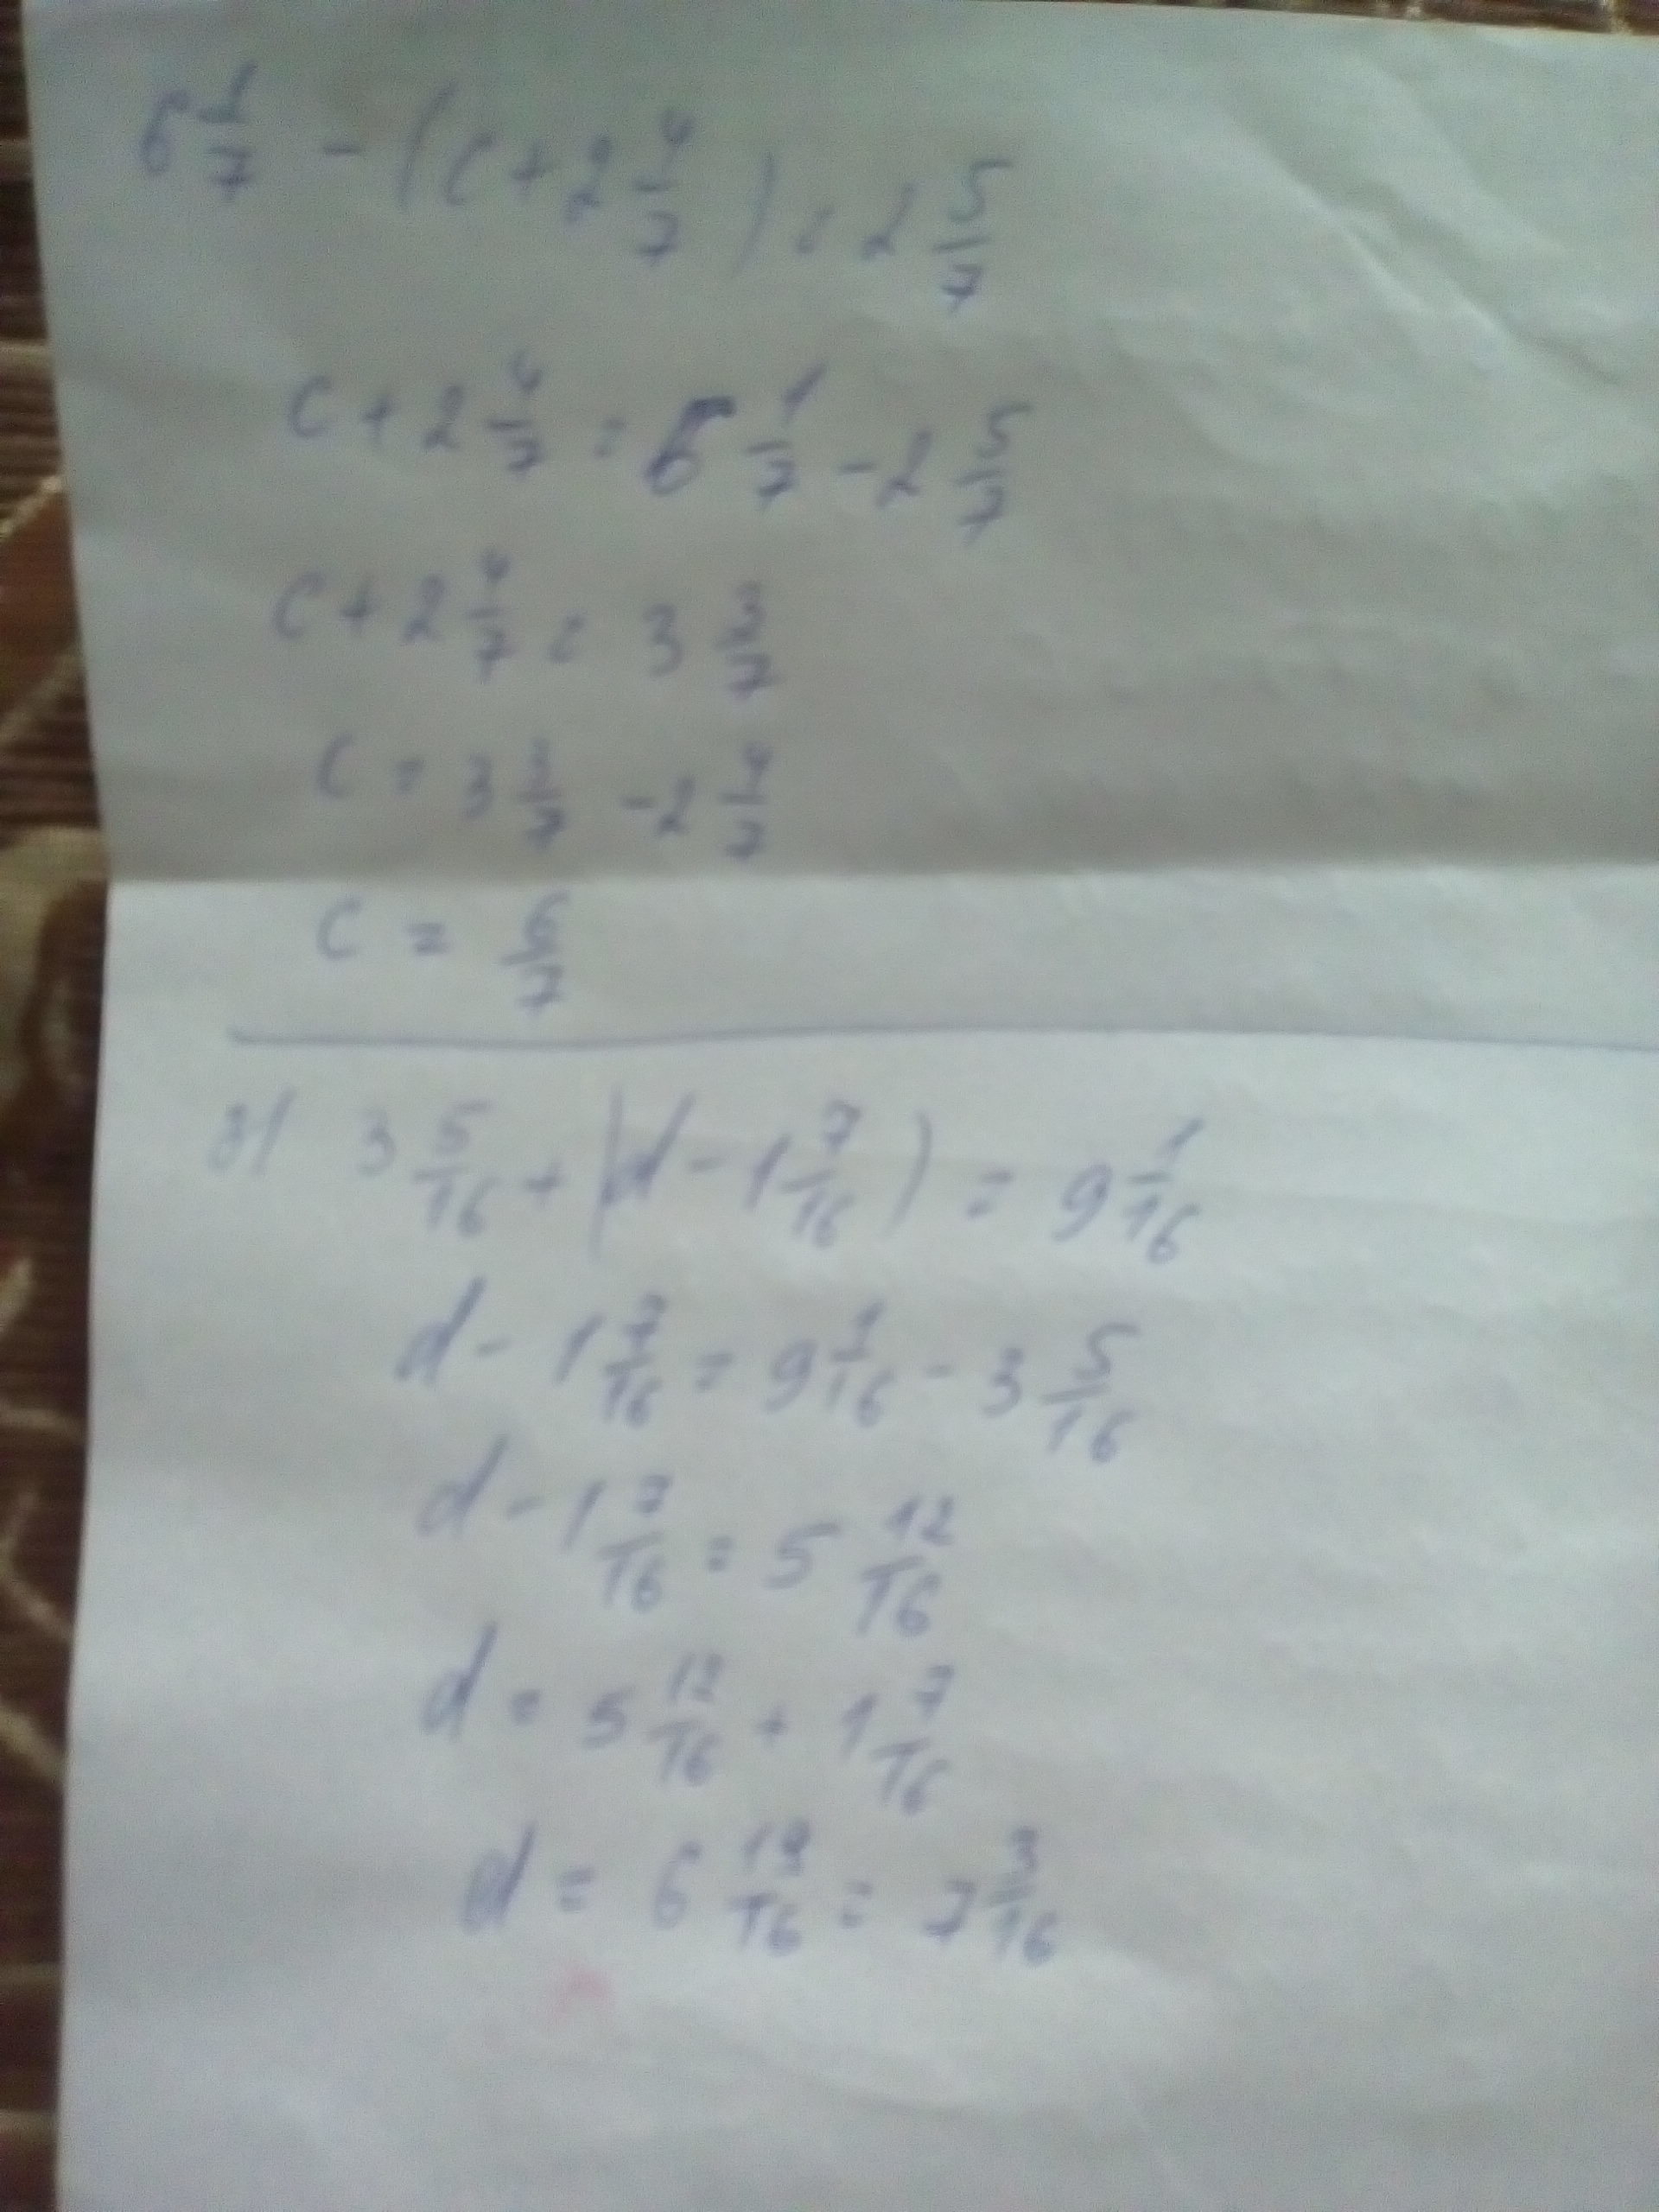 6 1/7 - (c + 2 4/7) = 2 5/7
c + 2 4/7 = 6 1/7 - 2 5/7
c + 2 4/7 = 3 3/7
c = 3 3/7 - 2 4/7
c = 6/7
3 5/16 + (d - 1 7/16) = 9 1/16
d - 1 7/16 = 9 1/16 - 3 5/16
d - 1 7/16 = 5 12/16
d = 5 12/16 + 1 7/16
d = 6 19/16 = 7 3/16